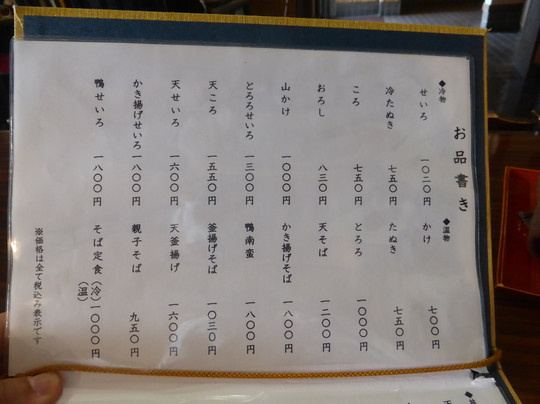 お品書き
◆冷物
せいろ 一〇二〇円
冷たぬき 七五〇円
ころ 七五〇円
おろし 八三〇円
山かけ 一〇〇〇円
とろろせいろ 一三〇〇円
天ころ 一五五〇円
天せいろ 一六〇〇円
かき揚げせいろ 一八〇〇円
鴨せいろ 一八〇〇円
◆温物
かけ 七〇〇円
たぬき 七五〇円
とろろ 一〇〇〇円
天そば 一二〇〇円
かき揚げそば 一八〇〇円
鴨南蛮 一八〇〇円
釜揚げそば 一〇三〇円
天釜揚げ 一六〇〇円
親子そば 九五〇円
そば定食(冷)(温) 一〇〇〇円
※価格は全て税込み表示です